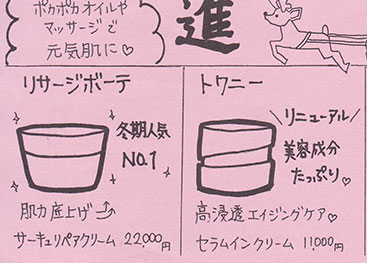 ポカポカオイルや
マッサージで
元気肌に♡
進
リサージボーテ
冬期人気
No.1
肌力底上げ
サーキュリペアクリーム 22,000円
トワニー
\リニューアル/
美容成分
たっぷり♡
高浸透エイジングケア♡
セラムインクリーム 11,000円